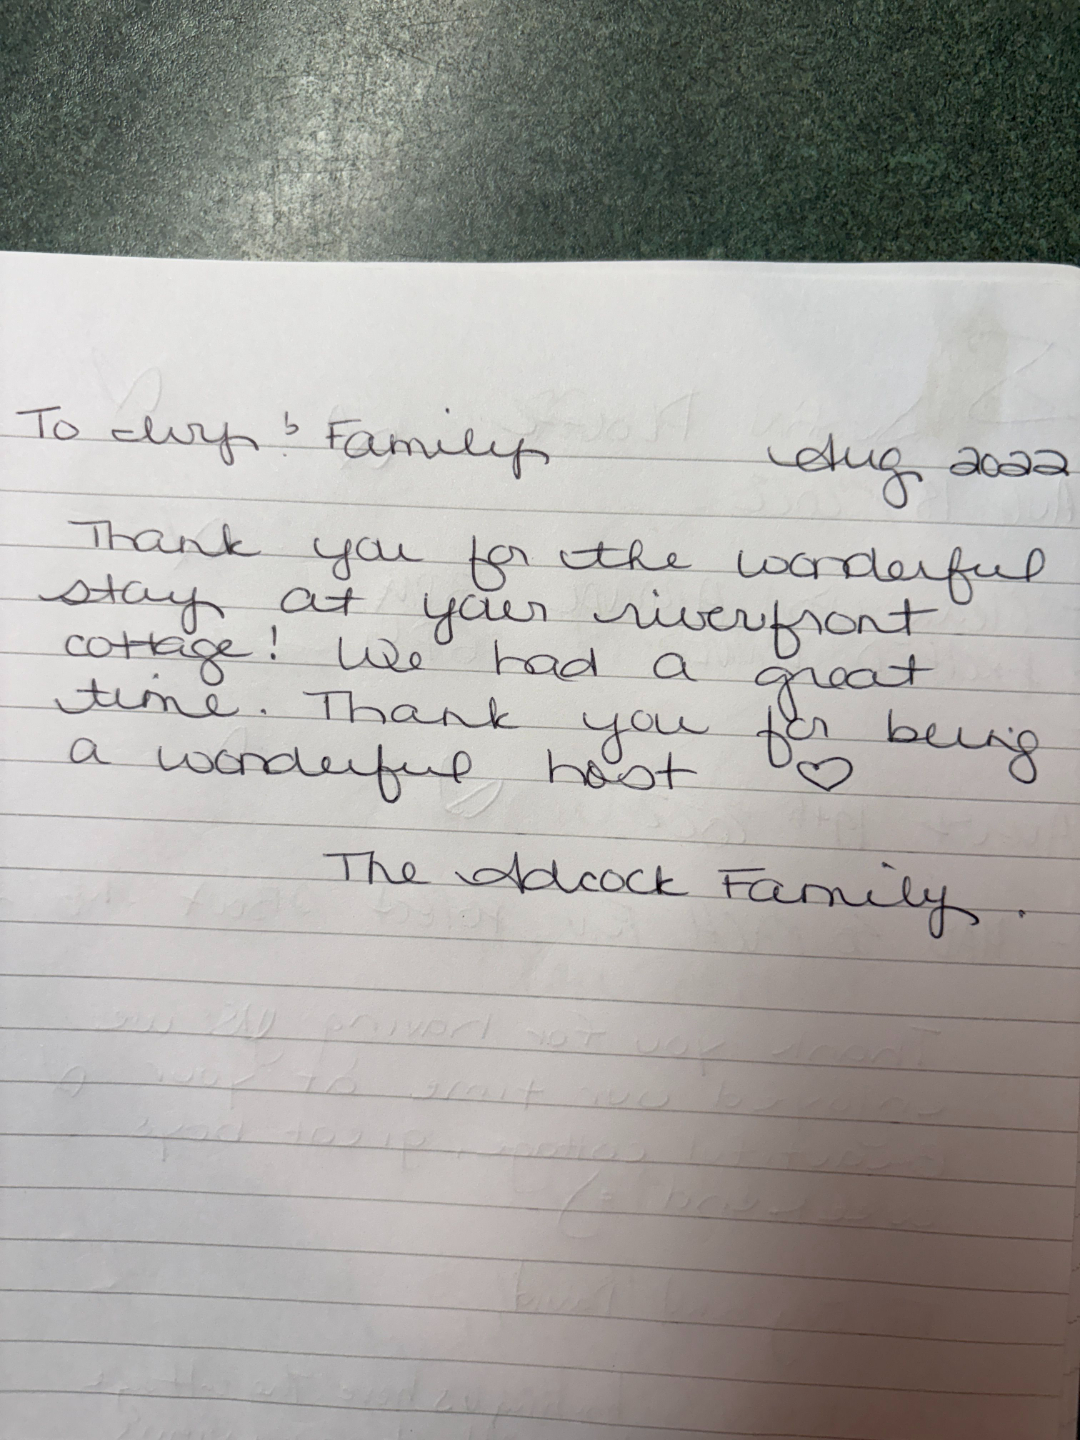 To Ivy & Family Aug 2022
Thank you for the wonderful
stay at your riverfront
cottage! We had a great
time. Thank you for being
a wonderful host ♡
The Adcock Family.